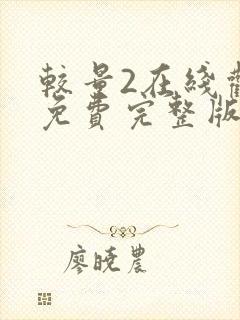 較量2在綫
免費完整版
廖曉農